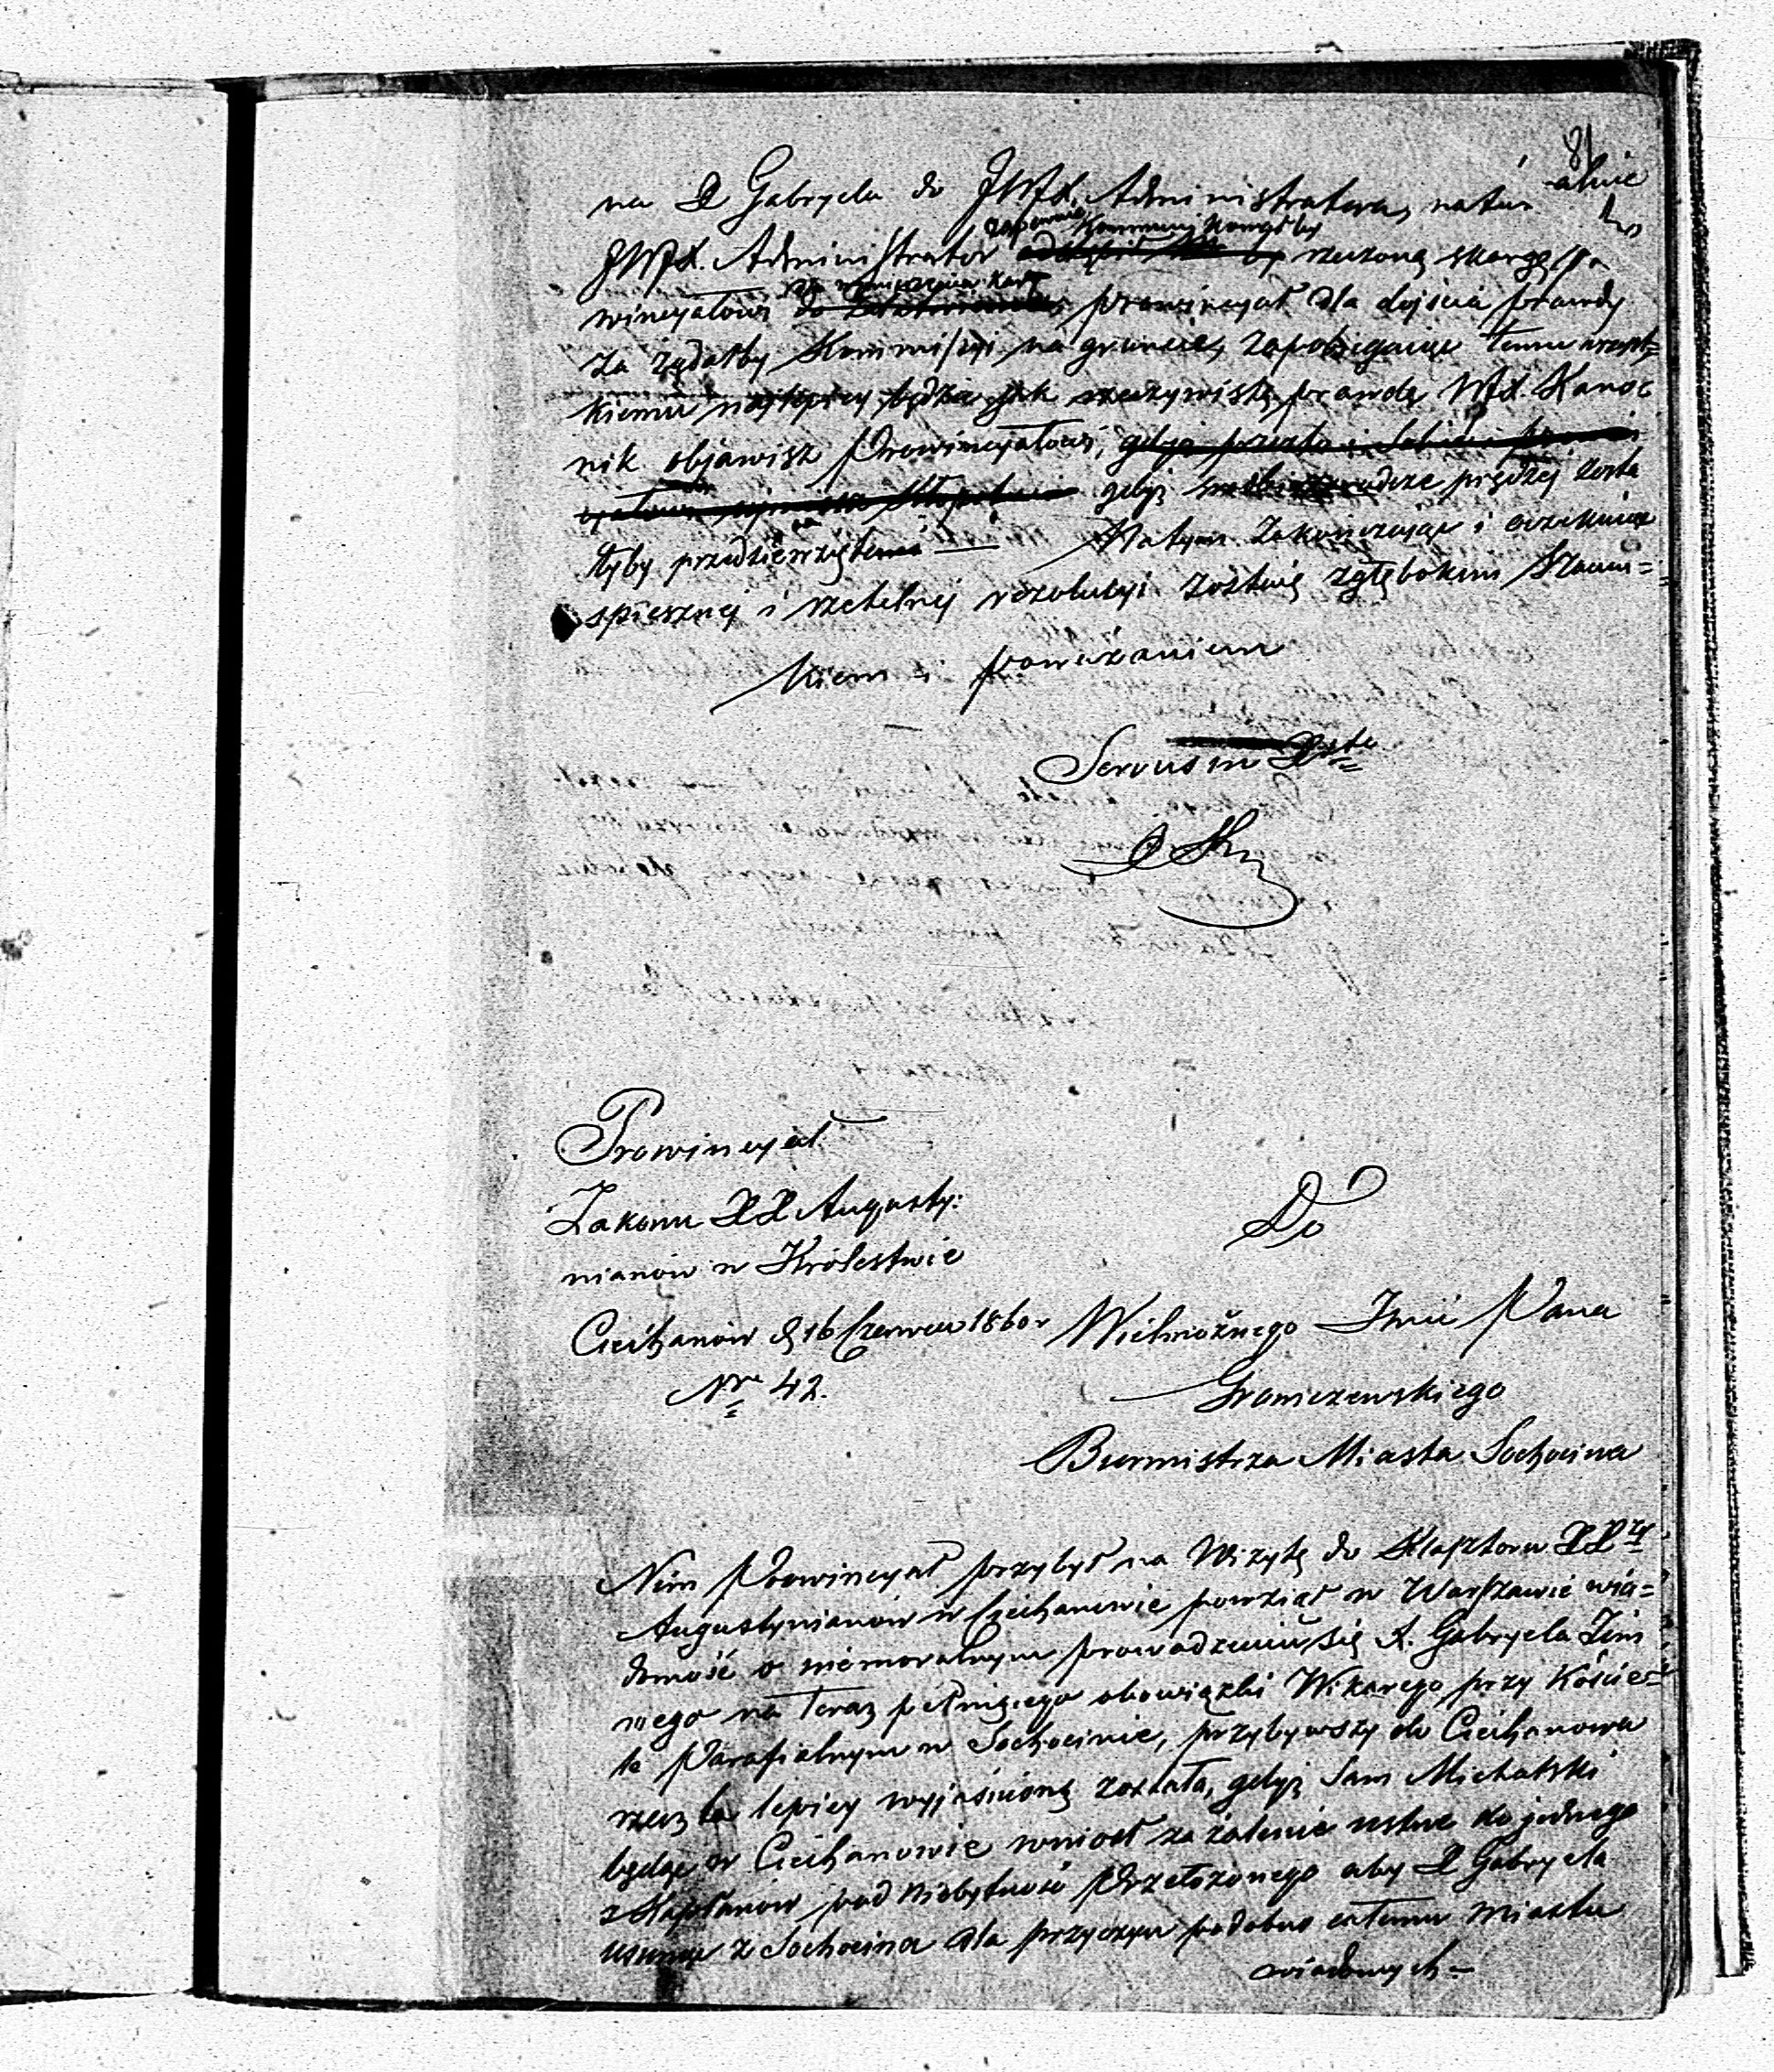 81
na X Gabryela do JWX. Administratora, natur
alnie
zapewne kommunikowałby
JWX. Administrator rzeczoną skargę Pro
wincyałowi Prowincyał dla dojścia prawdy
zażądałby Kommissyi na gruncie, zapobiegając temu wszyst=
kiemu najlepiey będzie jak rzeczywistą prawdę WX. Kano=
nik objawisz Prowincyałowi,
gdyż prędzej zosta
łyby przedsięwzięte — Natym zakończając i oczekując
spiesznej i rzetelnej rezolucyi zostaję z głębokim szacun=
kiem i poważaniem
Servus in Xsto
Prowincyał
Zakonu XX Augusty:
nianów w Królestwie
Do
Ciechanów d 16 Czerwca 1860 r
Wielmożnego Jmć Pana
Nro 42.
Graniczewskiego
Burmistrza Miasta Sochocina
Nim Prowincyał przybył na Wizytę do Klasztoru XXży
Augustynianów w Ciechanowie powziął w Warszawie wia=
domość o niemoralnym prowadzeniu się X. Gabryela Zim
nego na teraz pełniącego obowiązki Wikarego przy Koście=
le Parafialnym w Sochocinie, przybywszy do Ciechanowa
rzecz ta lepiey wyjaśnioną została, gdyż Sam Michalski
będąc w Ciechanowie wniosł zażalenie ustne do jednego
z Kapłanów pod niebytność Przełożonego aby X Gabryela
usunąć z Sochocina dla przyczyn podobno całemu miastu
wiadomych —